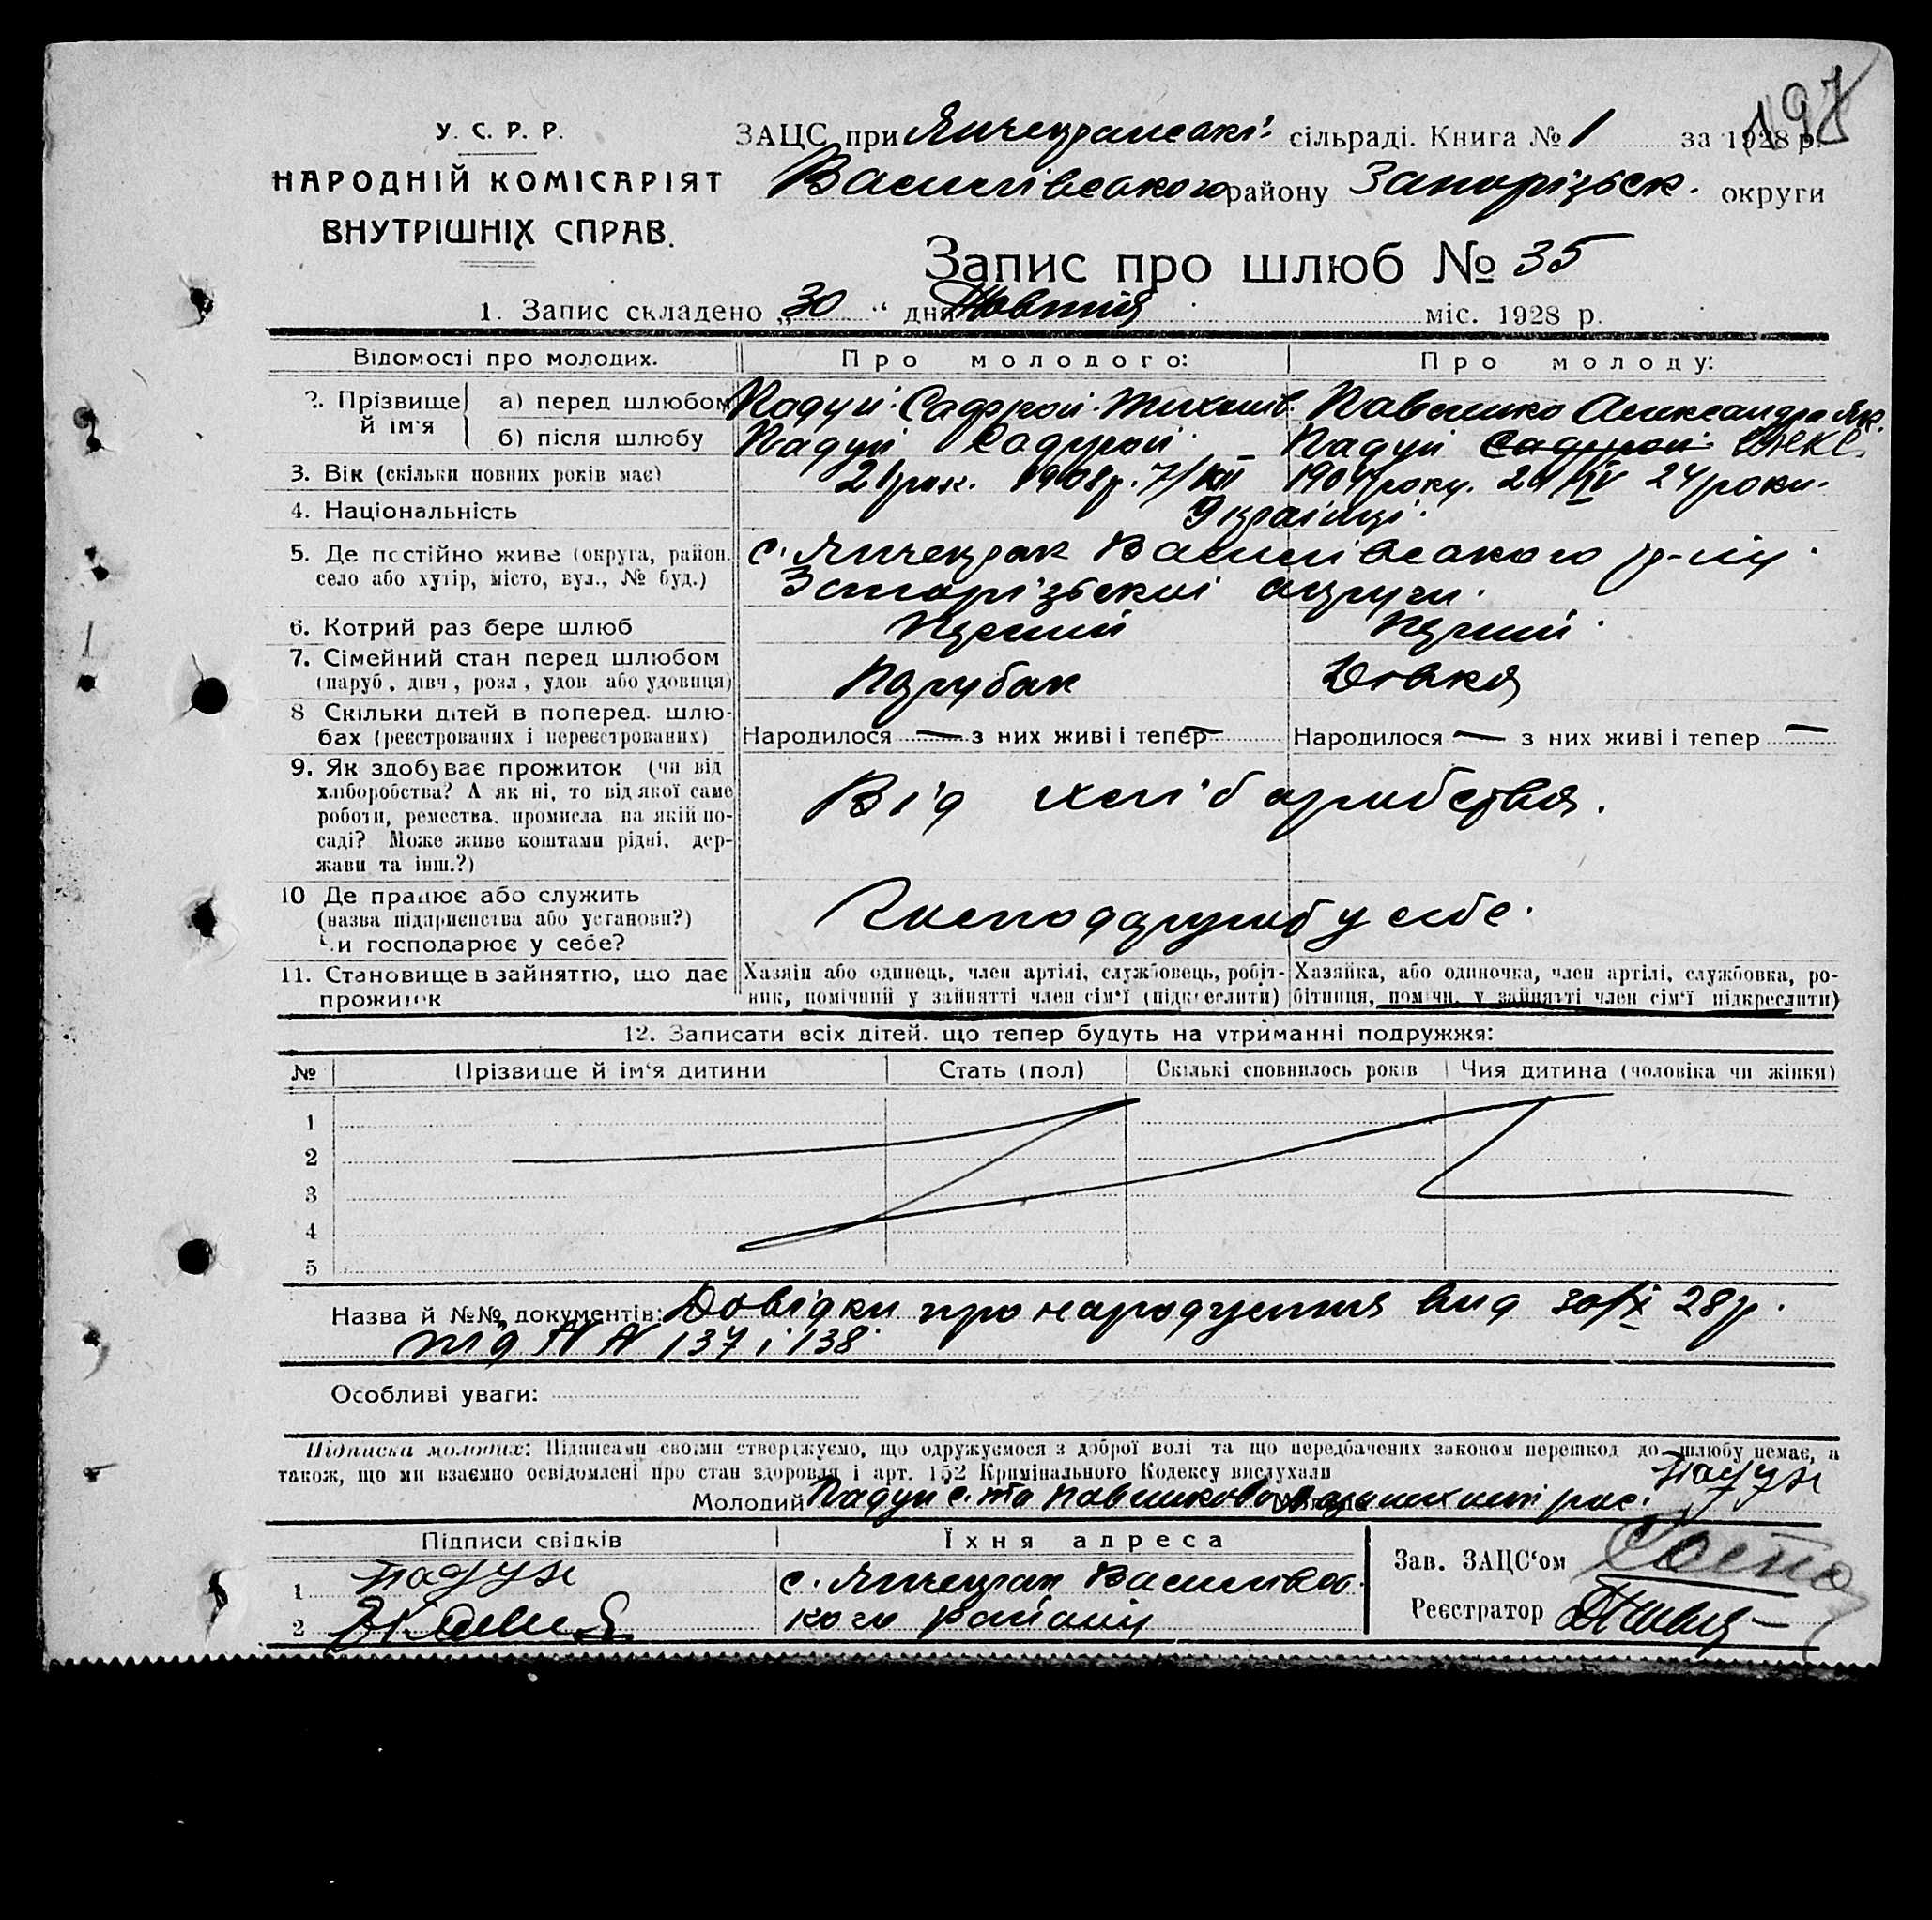 197
У. С. Р. Р.
НАРОДНІЙ КОМІСАРІЯТ
ВНУТРІШНІХ СПРАВ.
ЗАЦС при Янчекракській сільраді. Книга № 1 за 1928 р.
Василівського району Запорізьк. округи
Запис про шлюб № 35
1. Запис складено „30“ дня Жовтня міс. 1928 р.
Відомості про молодих. Про молодого: Про молоду:
2. Прізвище й ім'я а) перед шлюбом Падун Павленко Александра Як.
б) після шлюбу Падун Падун
3. Вік (скільки повних років має) 21 рок. 1908 р. 7/XII 1904 року. 24 роки.
4. Національність Українці.
5. Де постійно живе (округа, район, село або хутір, місто, вул., № буд.) с. Янчекрак Василівського р-ну
Запорізької округи.
6. Котрий раз бере шлюб Перший Перший
7. Сімейний стан перед шлюбом (паруб., дівч., розл., удов. або удовиця) Парубок Дівка
8 Скільки дітей в поперед. шлюбах (реєстрованих і нереєстрованих) Народилося — з них живі і тепер — Народилося — з них живі і тепер —
9. Як здобуває прожиток (чи від
хліборобства? А як ні, то від якої саме
роботи, ремества, промисла на якій по-
саді? Може живе коштами рідні, дер-
жави та інш.?)
Від хліборобства.
10 Де працює або служить
(назва підприємства або установи?)
Чи господарює у себе?
у себе.
11. Становище в зайняттю, що дає прожиток
Хазяїн або одинець, член артілі, службовець, робіт-
ник, помічний у зайнятті член сім'ї (підкреслити)
Хазяйка, або одиночка, член артілі, службовка, ро-
бітниця, помічн. у зайнятті член сім'ї підкреслити)
12. Записати всіх дітей. що тепер будуть на утриманні подружжя:
№ Прізвище й ім'я дитини Стать (пол) Скількі сповнилось років Чия дитина (чоловіка чи жінки)
1
2
3
4
5
Назва й №№ документів: Довідки про народження вид 30/X 28 р.
під NN 137 і 138
Особливі уваги:
Підписка молодих: Підписами своїми стверджуємо, що одружуємося з доброї волі та що передбачених законом перешкод до шлюбу немає, а
також, що ми взаємно освідомлені про стан здоровля і арт. 152 Кримінального Кодексу вислухали
Молодий Падун с. та Павленкова Падун
Підписи свідків Їхня адреса
1 Падун с. Янчекрак Василівсь-
2 кого району
Зав. ЗАЦС'ом
Реєстратор